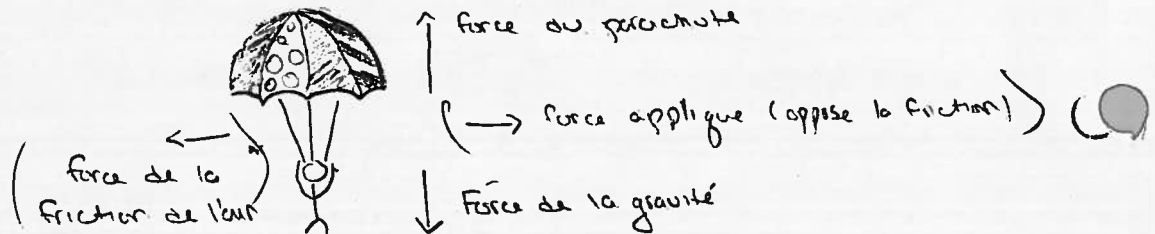 Force du parachute
(→ force applique (oppose la friction))
(force de la
friction de l'air)
Force de la gravité